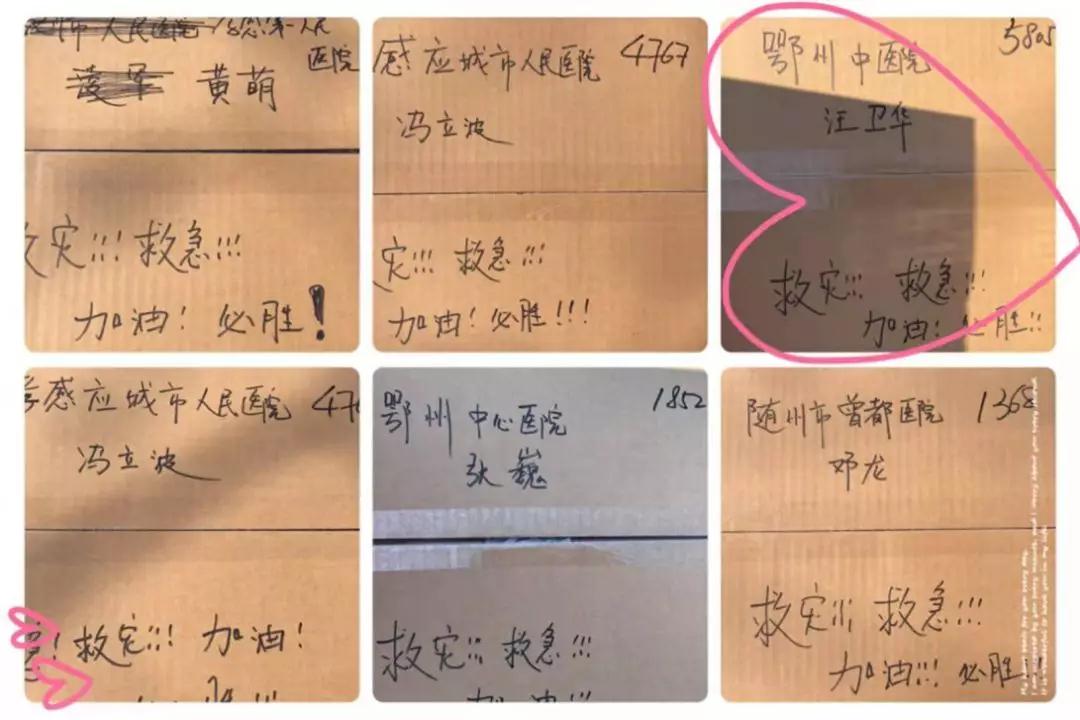 人民医院
医院
黄萌
救灾!!! 救急!!!
加油! 必胜!
感应城市人民医院 4767
冯立波
灾!!! 救急!!!
加油! 必胜!!!
鄂州中医院 5805
汪卫华
救灾!!! 救急!!!
加油! 必胜!!
孝感应城市人民医院 476
冯立波
救灾!!! 加油!
鄂州中心医院 1852
张巍
救灾!!! 救急!!!
加油!!!
随州市曾都医院 1368
邓龙
救灾!!! 救急!!!
加油!!! 必胜!!